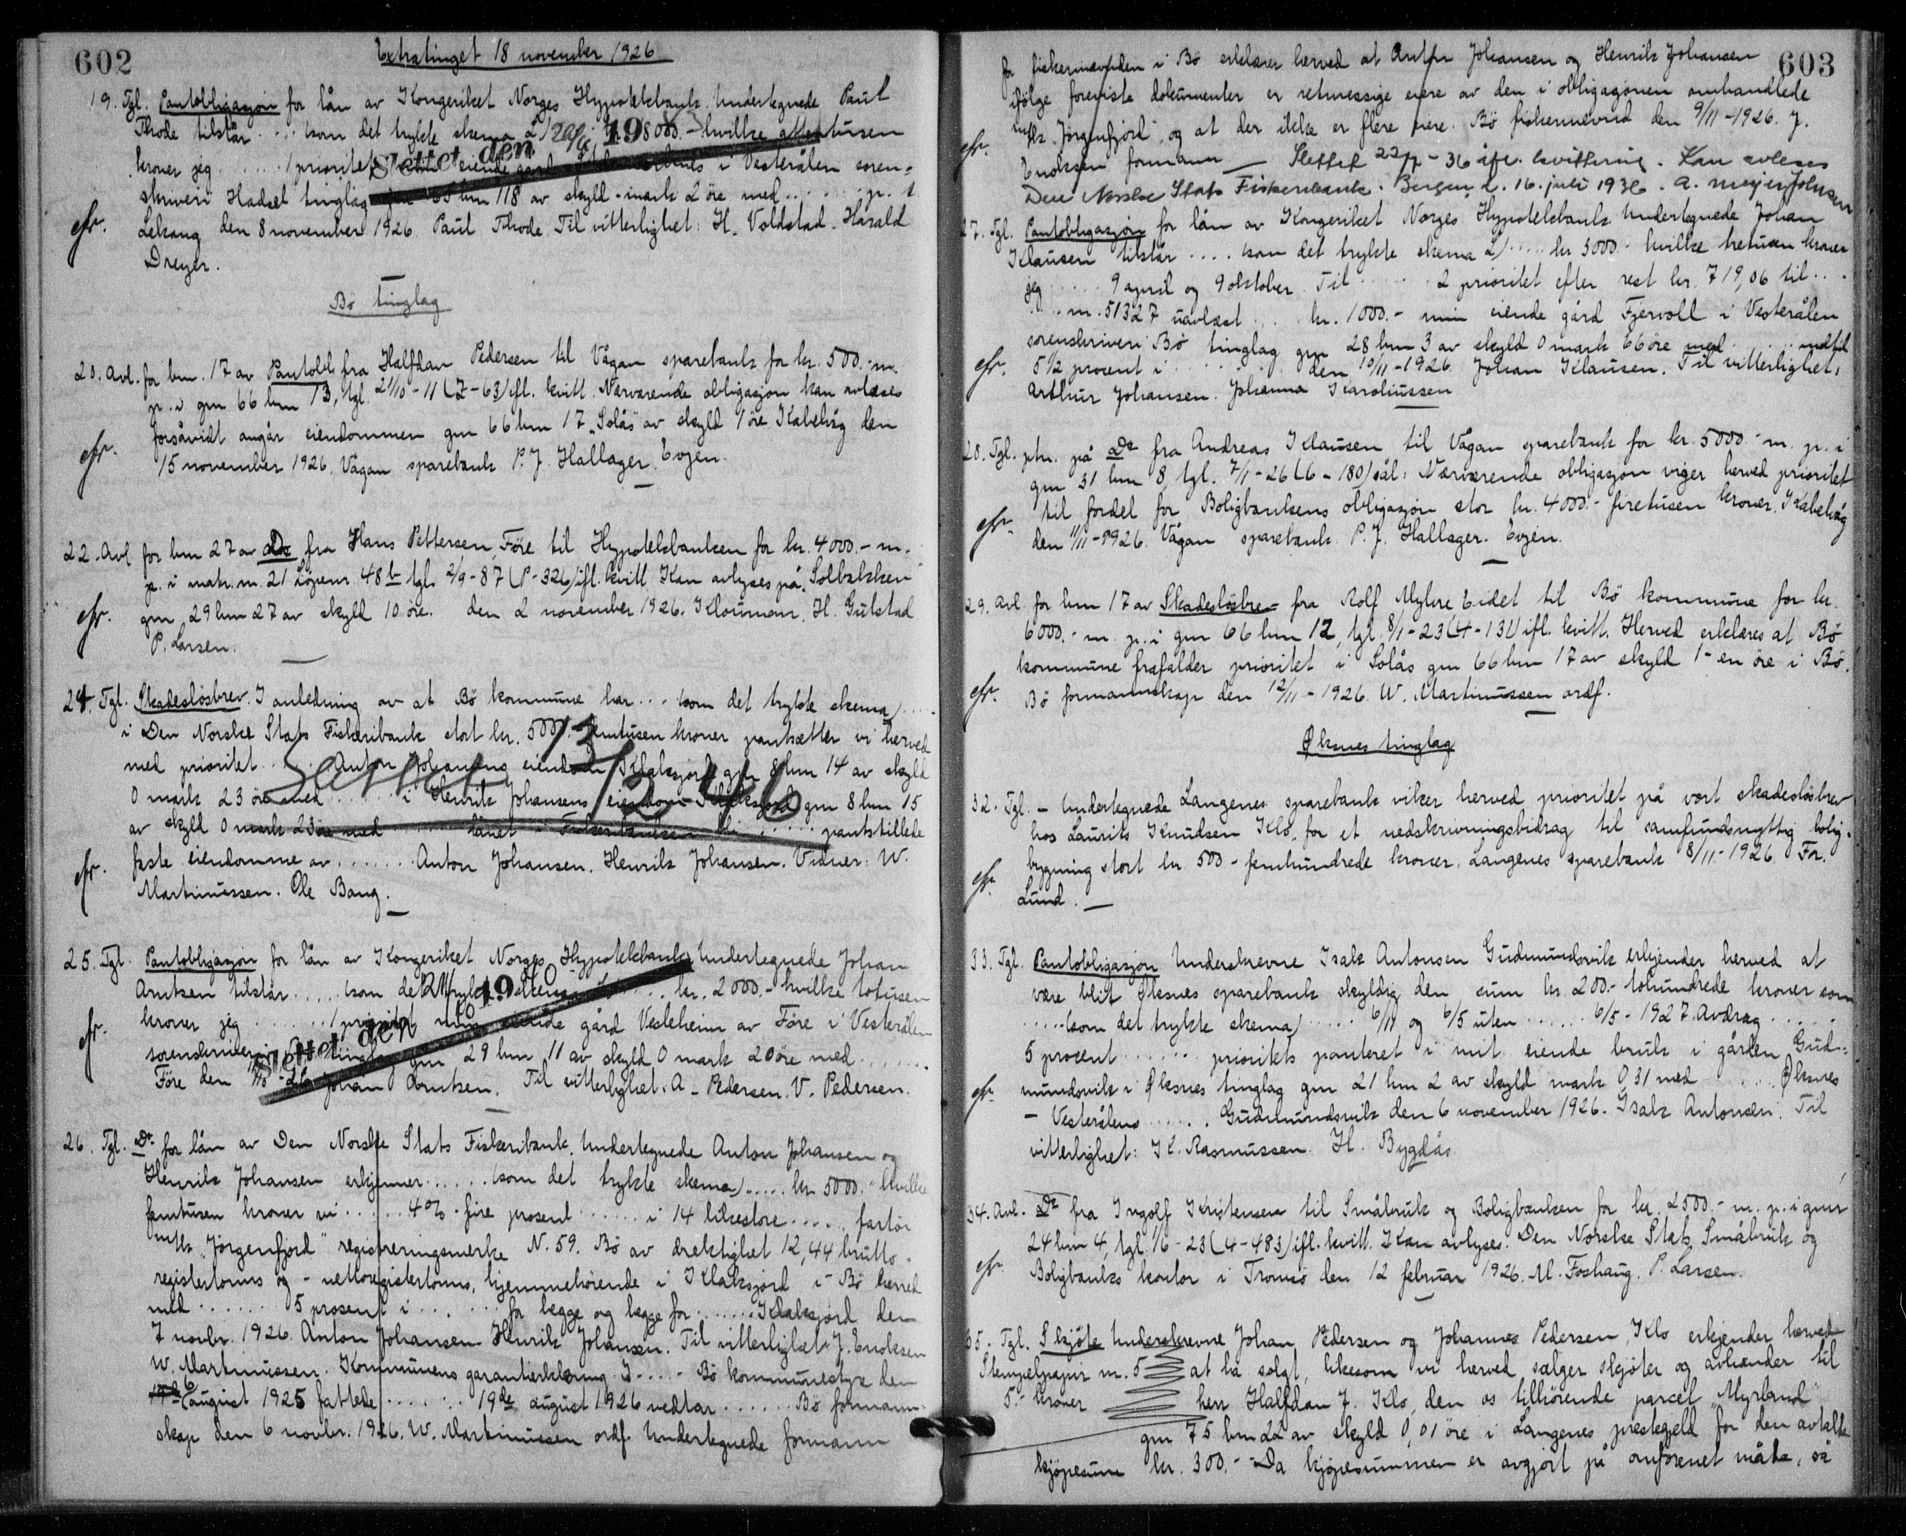 602
Extratinget 18 november 1926
19. Tgl. Pantobligasjon for lån av Kongeriket Norges Hypotekbank. Undertegnede Paul
Thode tilstår .... (som det trykte skema 2) 8000.- hvilke ottetusen
kroner jeg ..... 1 prioritet eiende gård i Vesterålen soren-
skriveri Hadsel tinglag gnr 65 bnr 118 av skyld - mark 2 öre med ........ gr. 1
Slettet den 19
Lekang den 8 november 1926. Paul Thode. Til vitterlighet: H. Voldstad. Harald
efr.
Dreyer.
Bö tinglag
20. Avl. for bnr. 17 av Pantobl. fra Halfdan Pedersen til Vågan sparebank for kr. 500.- m.
p. i gnr 66 bnr 13, tgl. 21/10-11 (7-63) ifl. kvitt. Nærværende obligasjon kan avlæses
forsåvidt angår eiendommen gnr 66 bnr 17 "Solås" av skyld 1 öre Kabelvåg den
efr.
15 november 1926. Vågan sparebank P. J. Hallager. Evjen.
22. Avl for bnr 27 av Do fra Hans Pettersen, Före til Hypotekbanken for kr. 4000.- m.
p. i matr. nr. 21 Löpenr 48b tgl. 2/9-87 (P-326) ifl. kvitt. Kan avlyses på "Solbakken"
efr.
gnr 29 bnr 27 av skyld 10 öre. den 2 november 1926. Kloumann. H. Gulstad
P. Larsen.
24. Tgl. Skadeslösbrev. I anledning av at Bö kommune har ... (som det trykte skema) ....
i Den Norske Stats Fiskeribank stort kr. 5000.- femtusen kroner pantsætter vi herved
med prioritet ..... Anton Johansens eiendom Klaksjord gnr 8 bnr 14 av skyld
0 mark 23 öre med ........ i Henrik Johansens eiendom Klaksjord gnr 8 bnr 15
Slettet 13/2 46
av skyld 0 mark 23 öre med ...... lånet i Fiskeribanken bli ...... pantstillede
faste eiendomme av ........ Anton Johansen. Henrik Johansen. Vidner: W.
efr.
Martinussen. Ole Bang.
25. Tgl. Pantobligasjon for lån av Kongeriket Norges Hypotekbank Undertegnede Johan
Arntsen tilstår ..... (som det trykte ..... kr. 2000.- hvilke totusen
kroner jeg ........ 1 prioritet min eiende gård Vesleheim av Före i Vesterålen
efr.
sorenskriveri Bö tinglag gnr 29 bnr 11 av skyld 0 mark 20 öre med ........
Slettet den 19
Före den Johan Arntsen. Til vitterlighet: A. Pedersen. V. Pedersen.
26. Tgl. Do for lån av Den Norske Stats Fiskeribank. Undertegnede Anton Johansen og
Henrik Johansen erkjenner ...... (som det trykte skema) ..... kr 5000.- hvilke
femtusen kroner vi ...... 4% - fire prosent ....... i 14 likestore ..... fartöi
mtk. "Jörgenfjord" registreringsmerke N. 59. Bö av drektighet 12,44 brutto-
registertonns og - nettoregistertonns, hjemmehörende i Klaksjord i Bö herred
med ........ 5 prosent i ........ for begge og begge for ....... Klaksjord den
7 novbr. 1926. Anton Johansen Henrik Johansen. Til vitterlighet: J. Enoksen
W. Martinussen. Kommunens garantierklæring. I ..... Bö kommunestyre den
august 1925 fattede ...... 19de august 1926 vedtar ....... Bö formann-
skap den 6 novbr. 1926. W. Martinussen ordf. Undertegnede formann
603
for fiskerinævnden i Bö erklærer herved at Anton Johansen og Henrik Johansen
ifölge foreviste dokumenter er retmessige eiere av den i obligasjonen omhandlede
mtk. "Jörgenfjord" og at der ikke er flere eiere. Bö fiskerinevnd den 9/11-1926. J.
efr.
Enoksen formann — Slettet 22/7-36 ifl. kvittering. Kan avleses
Den Norske Stats Fiskeribank. Bergen d. 16. juli 1936. A. Meyer Johnsen
27. Tgl. Pantobligasjon for lån av Kongeriket Norges Hypotekbank Undertegnede Johan
Klausen tilstår .... (som det trykte skema 2) ..... kr 3000.- hvilke tretusen kroner
jeg ...... 9 april og 9 oktober. Til ........ 2 prioritet efter rest kr. 719,06 til ...
... nr. 51327 uavlæst ... kr. 1000.- min eiende gård Fjervoll i Vesterålen
sorenskriveri Bö tinglag gnr 28 bnr 3 av skyld 0 mark 66 öre med ........ indtil
efr.
5 1/2 procent i ........ den 10/11-1926 Johan Klausen. Til vitterlighet:
Arthur Johansen. Johanna Karoliussen
28. Tgl. ptn. på Do fra Andreas Klausen til Vågan sparebank for kr. 5000.- m. p. i
gnr 31 bnr 8, tgl. 7/1-26 (6-180) sål: Nærværende obligasjon viger herved prioritet
til fordel for Boligbankens obligasjon stor kr. 4000.- firetusen kroner. Kabelvåg
efr.
den 11/11-1926. Vågan sparebank. P. J. Hallager. Evjen.
29. Avl for bnr 17 av Skadeslösbrev fra Rolf Myhre Eidet til Bö kommune for kr.
6000.- m. p. i gnr 66 bnr 12, tgl. 8/1-23 (4-131) ifl. kvitt. Herved erklæres at Bö
kommune frafalder prioritet i Solås gnr 66 bnr 17 av skyld 1- en öre i Bö.
efr.
Bö formannskap den 12/11-1926. W. Martinussen ordf.
Øksnes tinglag
32. Tgl. - Undertegnede Langenes sparebank viker herved prioritet på vort skadeslösbrev
hos Laurits Knudsen Klo, for et nedskrivningsbidrag til samfundsnyttig bolig-
bygning stort kr. 500 - femhundrede kroner. Langenes sparebank 8/11-1926. For.
efr.
Lund.
33. Tgl. Pantobligasjon Underskrevne Isak Antonsen Gudmundsvik erkjender herved at
være blit Øksnes sparebank skyldig den sum kr. 200.- tohundrede kroner som
..... (som det trykte skema) ..... 6/11 og 6/5 uten ...... 6/5-1927. Avdrag .....
5 prosent ........ prioritets panteret i mit eiende bruk i gården Gud-
mundsvik i Øksnes tinglag gnr 21 bnr 2 av skyld mark 0,31 med ...... Øksnes
efr.
- Vesterålens ...... Gudmundsvik den 6 november 1926. Isak Antonsen. Til
vitterlighet: K. Rasmussen. H. Bygdås.
34. Avl. Do fra Ingolf Kristensen til Småbruk og Boligbanken for kr. 2500.- m. p. i gnr
24 bnr 4, tgl. 1/6-23 (4-483) ifl. kvitt. Kan avlyses. Den Norske Stats Småbruk og
efr.
Boligbanks kontor i Tromsö den 12 februar 1926. M. Foshaug. P. Larsen.
35. Tgl. Skjöte Underskrevne Johan Pedersen og Johannes Pedersen Klo erkjender herved
Stempelpapir nr. 5 at ha solgt, likesom vi herved sælger skjöter og avhænder til
5.- kroner herr Halfdan J. Klo, den os tilhörende parcel "Myrland"
gnr 75 bnr 22 av skyld 0,01 öre i Langenes prestegjeld for den avtalte
kjöpesum kr. 300.- Da kjöpesummen er avgjort på omforenet måte, så